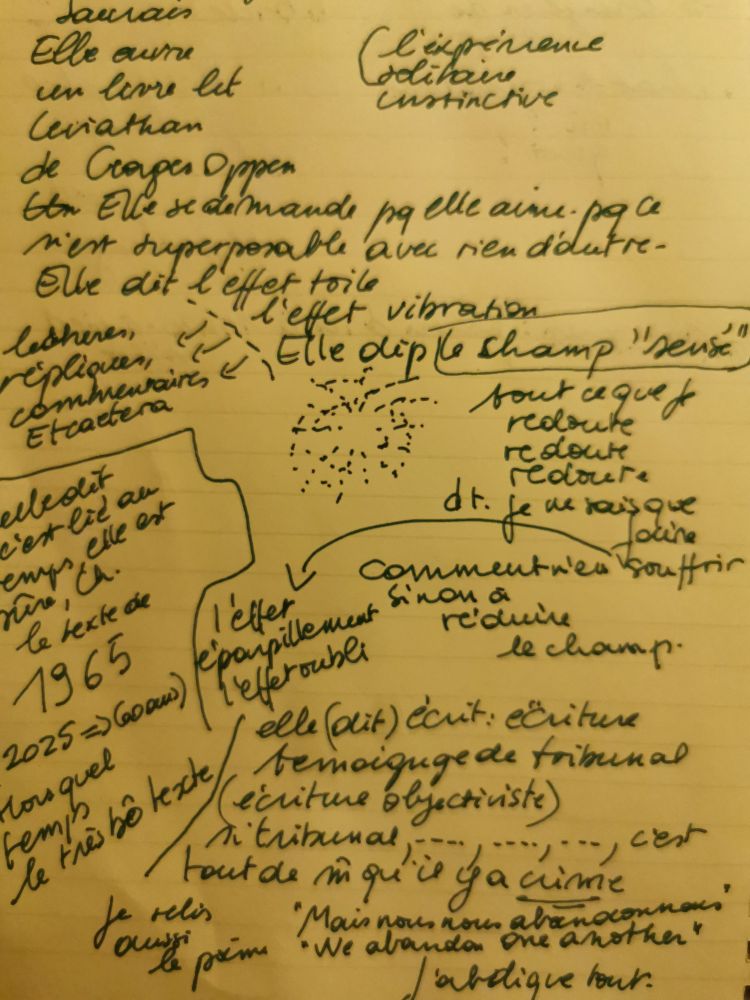 saurais
Elle ouvre
un livre lit
Leviathan
de Georges Oppen
Elle se demande pq elle aime. pq ce
n'est superposable avec rien d'autre.
Elle dit l'effet toile
l'effet vibration
Elle dit le champ "sensé"
(l'expérience
solitaire
instinctive
répliques,
commentaires
Etcaetera
tout ce que je
redoute
redoute
redoute
dt. je ne sais que
dire
comment rien souffrir
sinon à
réduire
le champ.
l'effet
éparpillement
l'effet oubli
elle dit
c'est lié au
temps, elle est
sûre, ça.
le texte de
1965
2025 => (60 ans)
hors quel
temps
le très bô texte
elle (dit) écrit : écriture
temoignage de tribunal
(écriture objectiviste)
si tribunal, ...., ...., ..., c'est
tout de m̂ qu'il y a crime
je relis
aussi
le poème
"Mais nous nous abandonnons"
"We abandon one another"
j'abdique tout.